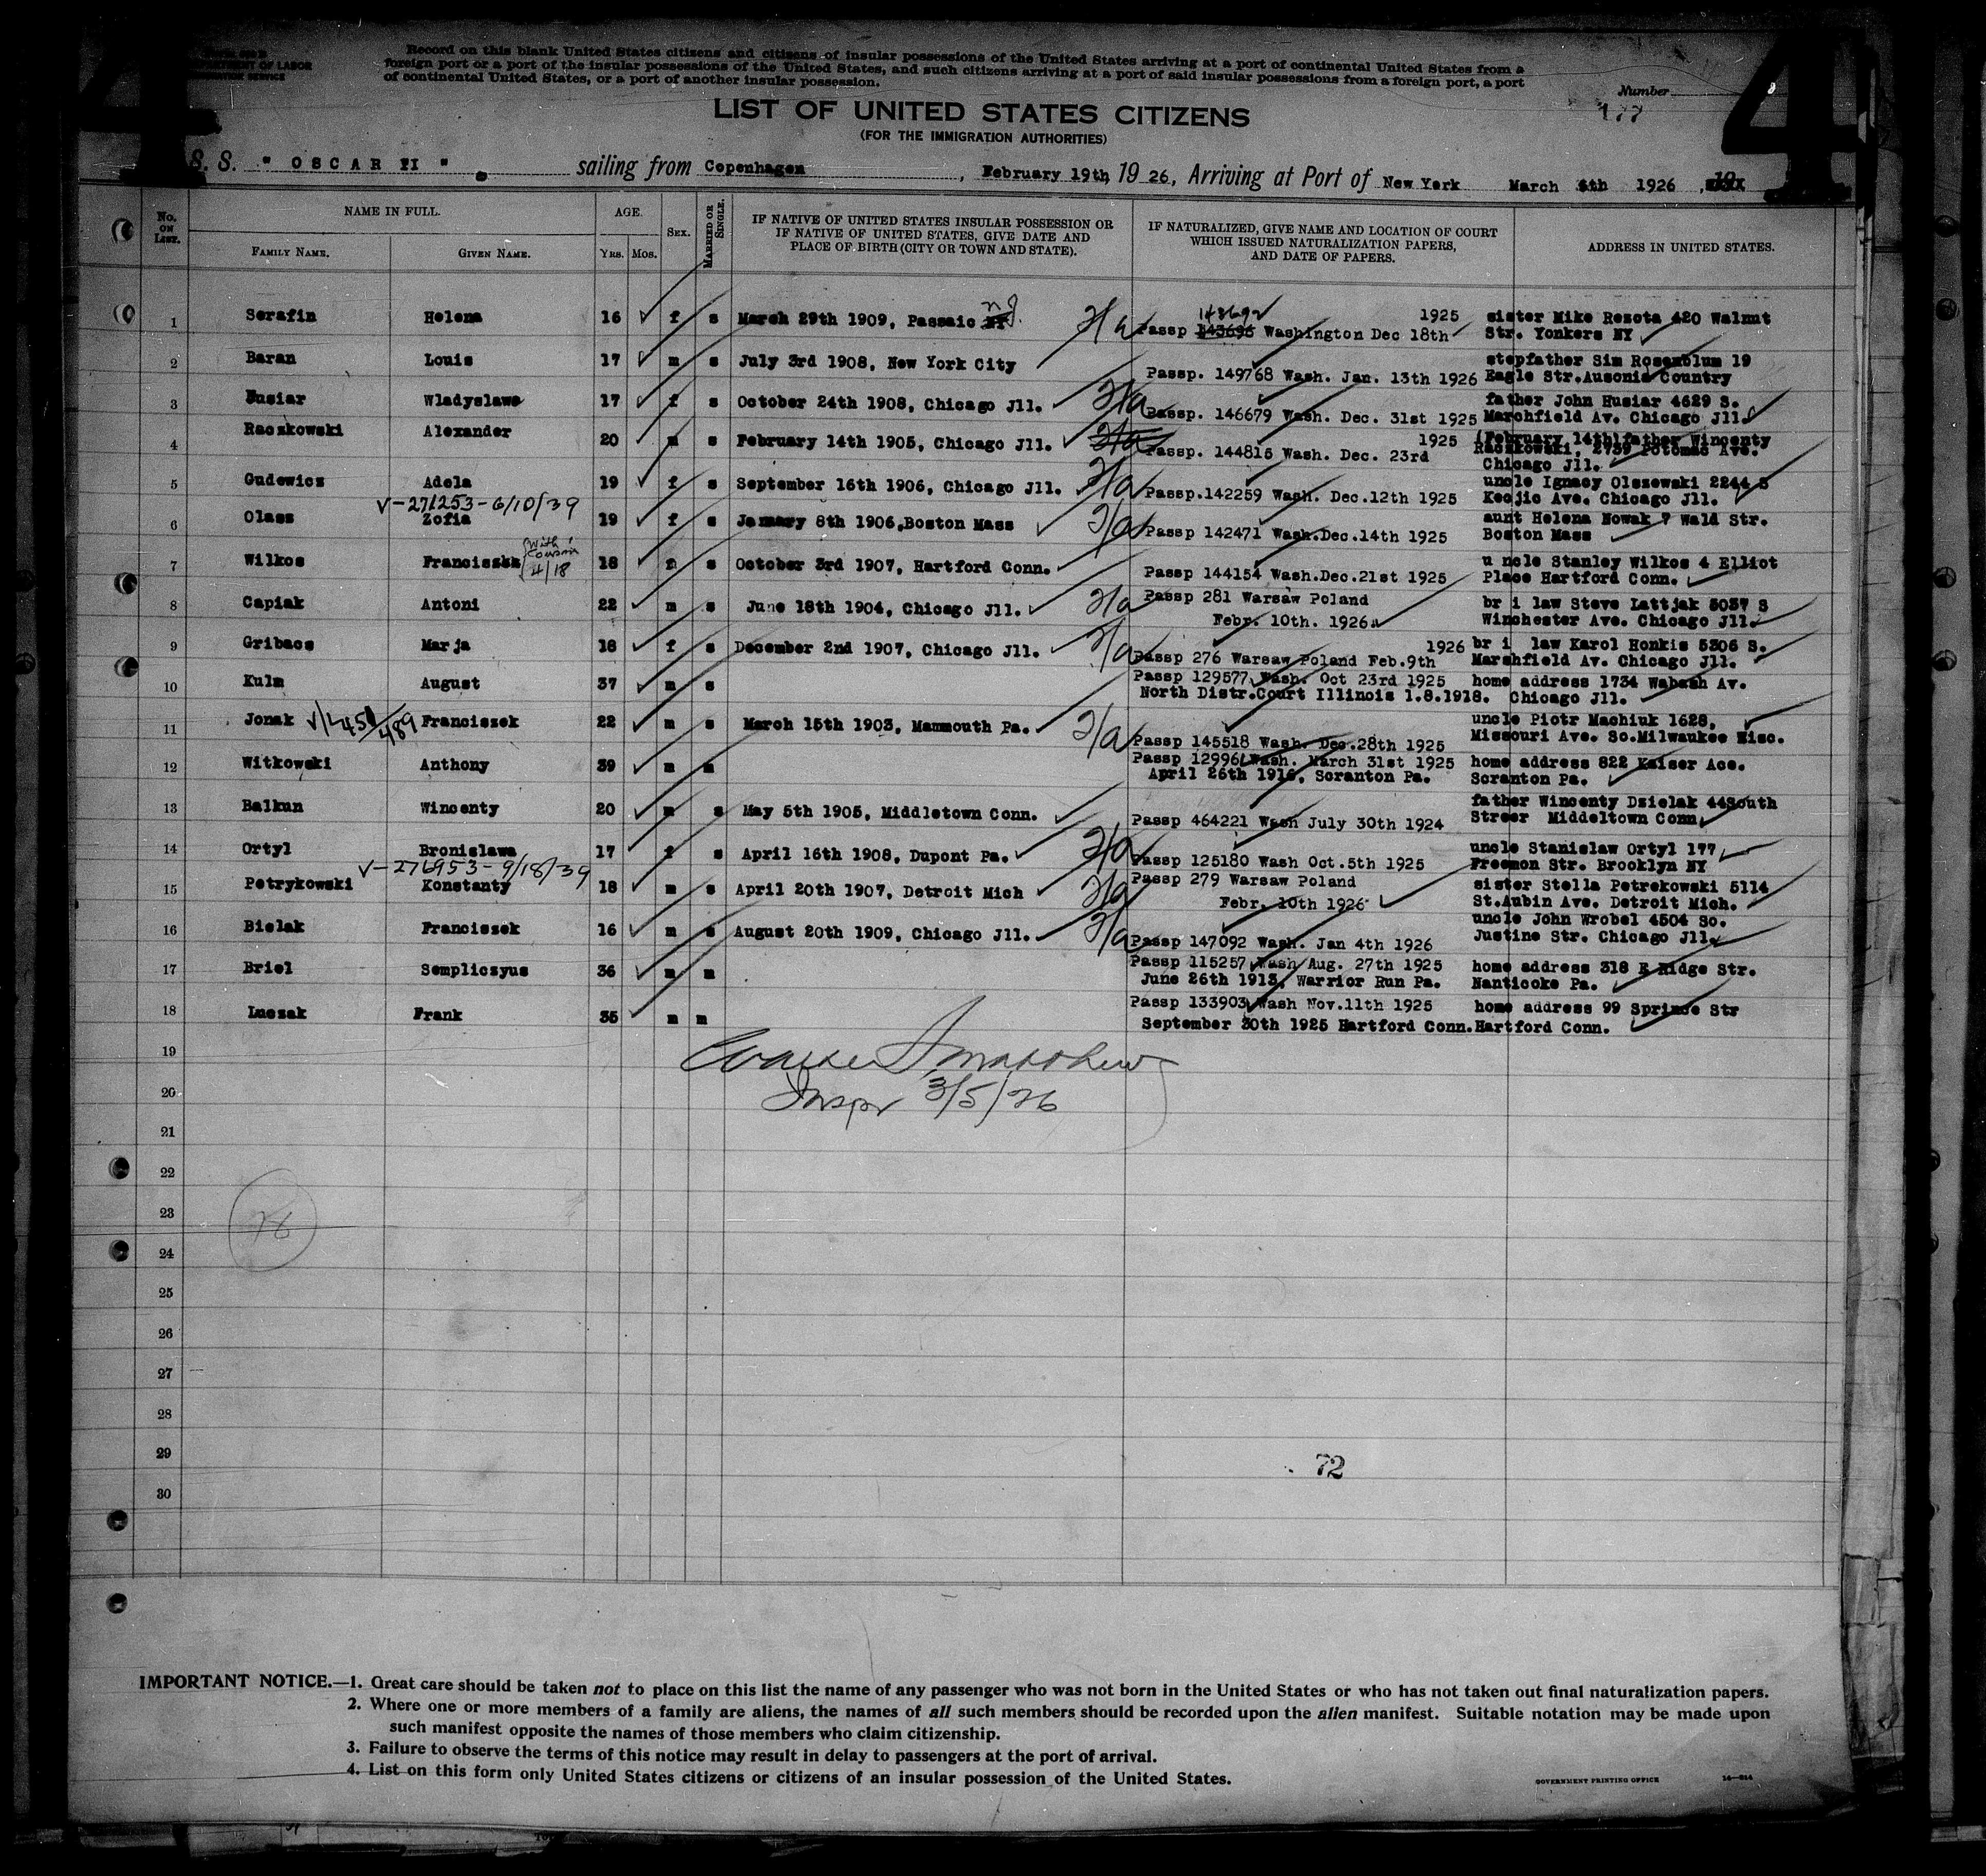 DEPARTMENT OF LABOR
IMMIGRATION SERVICE
Record on this blank United States citizens and citizens of insular possessions of the United States arriving at a port of continental United States from a
foreign port or a port of the insular possessions of the United States, and such citizens arriving at a port of said insular possessions from a foreign port, a port
of continental United States, or a port of another insular possession.
4
Number
177
LIST OF UNITED STATES CITIZENS
(FOR THE IMMIGRATION AUTHORITIES)
S. S. " OSCAR II " sailing from Copenhagen, February 19th, 1926, Arriving at Port of New York March 6th 1926
No. ON LIST.
NAME IN FULL.
FAMILY NAME. GIVEN NAME.
AGE.
YRS. MOS.
SEX.
MARRIED OR SINGLE.
IF NATIVE OF UNITED STATES INSULAR POSSESSION OR
IF NATIVE OF UNITED STATES, GIVE DATE AND
PLACE OF BIRTH (CITY OR TOWN AND STATE).
IF NATURALIZED, GIVE NAME AND LOCATION OF COURT
WHICH ISSUED NATURALIZATION PAPERS,
AND DATE OF PAPERS.
ADDRESS IN UNITED STATES.
1 Serafin Helena 16 f s March 29th 1909, Passaic NJ. 1925 sister Mike Rezota 420 Walnut
Passp Washington Dec 18th Str. Yonkers NY
2 Baran Louis 17 m s July 3rd 1908, New York City stepfather Sim Rosenblum 19
Passp. 149768 Wash. Jan. 13th 1926 Eagle Str.Ausonia Country
3 Husiar Wladyslawa 17 f s October 24th 1908, Chicago Jll. father John Husiar 4629 S.
Passp. 146679 Wash. Dec. 31st 1925 Marchfield Av. Chicago Jll.
4 Raczkowski Alexander 20 m s February 14th 1905, Chicago Jll. 1925 (February 14th)father Wincenty
Passp. 144815 Wash. Dec. 23rd Raczkowski, 2739 Potomac Ave.
Chicago Jll.
5 Gudewicz Adela 19 f s September 16th 1906, Chicago Jll. uncle Ignacy Olszewski 2244 S
Passp.142259 Wash. Dec.12th 1925 Keojic Ave. Chicago Jll.
V-271253-6/10/39
6 Olass Zofia 19 f s January 8th 1906,Boston Mass aunt Helena Nowak 7 Wald Str.
Passp 142471 Wash.Dec.14th 1925 Boston Mass
with cousin 4/18
7 Wilkos Franciszka 18 s October 3rd 1907, Hartford Conn. u ncle Stanley Wilkos 4 Elliot
Passp 144154 Wash.Dec.21st 1925 Place Hartford Conn.
8 Capiak Antoni 22 m s June 18th 1904, Chicago Jll. Passp 281 Warsaw Poland br i law Steve Lattjak 5037 S
Febr. 10th. 1926 Winchester Ave. Chicago Jll.
9 Gribacs Marja 18 f s December 2nd 1907, Chicago Jll. 1926 br i law Karol Honkis 5306 S.
Passp 276 Warsaw Poland Feb.9th Marshfield Av. Chicago Jll.
10 Kulm August 37 m s Passp 129577 Wash. Oct 23rd 1925 home address 1734 Wabash Av.
North Distr.Court Illinois 1.8.1918. Chicago Jll.
11 Jonak Franciszek 22 m s March 15th 1903, Mammouth Pa. uncle Piotr Machiuk 1628,
Passp 145518 Wash. Dec.28th 1925 Missouri Ave. So.Milwaukee Wisc.
12 Witkowski Anthony 39 m m Passp 129961 Wash. March 31st 1925 home address 822 Kaiser Ace.
April 26th 1916, Scranton Pa. Scranton Pa.
13 Balkun Wincenty 20 m s May 5th 1905, Middletown Conn. father Wincenty Dzielak 44South
Passp 464221 Wash July 30th 1924 Streer Middeltown Conn.
14 Ortyl Bronislawa 17 f s April 16th 1908, Dupont Pa. uncle Stanislaw Ortyl 177
Passp 125180 Wash Oct.5th 1925 Freemon Str. Brooklyn NY
V-276953-9/18/39
15 Petrykowski Konstanty 18 m s April 20th 1907, Detroit Mich Passp 279 Warsaw Poland sister Stella Petrekowski 5114
Febr. 10th 1926 St.Aubin Ave. Detroit Mich.
16 Bielak Franciszek 16 m s August 20th 1909, Chicago Jll. uncle John Wrobel 4504 So.
Passp 147092 Wash. Jan 4th 1926 Justine Str. Chicago Jll.
17 Briel Sempliczyus 36 m m Passp 115257 Wash Aug. 27th 1925 home address 318 E Ridge Str.
June 26th 1913, Warrior Run Pa. Nanticoke Pa.
18 Luczak Frank 35 m m Passp 133903 Wash Nov.11th 1925 home address 99 Sprince Str
September 30th 1925 Hartford Conn. Hartford Conn.
19
Inspr 3/5/26
20
21
22
23
24
25
26
27
28
29
72
30
IMPORTANT NOTICE.—1. Great care should be taken not to place on this list the name of any passenger who was not born in the United States or who has not taken out final naturalization papers.
2. Where one or more members of a family are aliens, the names of all such members should be recorded upon the alien manifest. Suitable notation may be made upon
such manifest opposite the names of those members who claim citizenship.
3. Failure to observe the terms of this notice may result in delay to passengers at the port of arrival.
4. List on this form only United States citizens or citizens of an insular possession of the United States.
GOVERNMENT PRINTING OFFICE